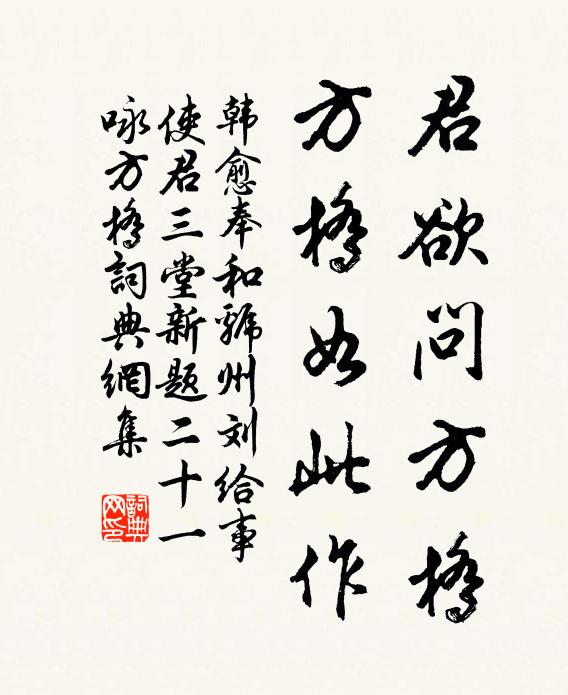 君欲问方橋
方橋如此作
韩愈奉和虢州刘给事
使君三堂新题二十一
咏方橋詞典網集
詞典网印